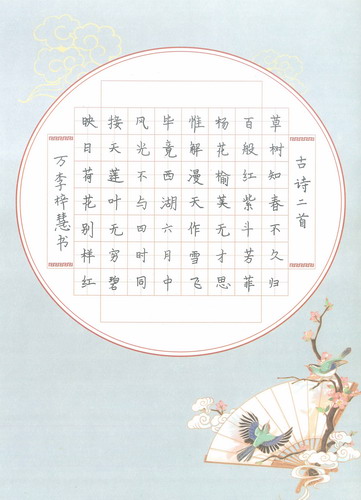 古诗二首
草树知春不久归
百般红紫斗苦菲
杨花榆荚无才思
惟解漫天作雪飞
毕竟西湖六月中
风光不与四时同
接天莲叶无穷碧
映日荷花别样红
万李梓慧书